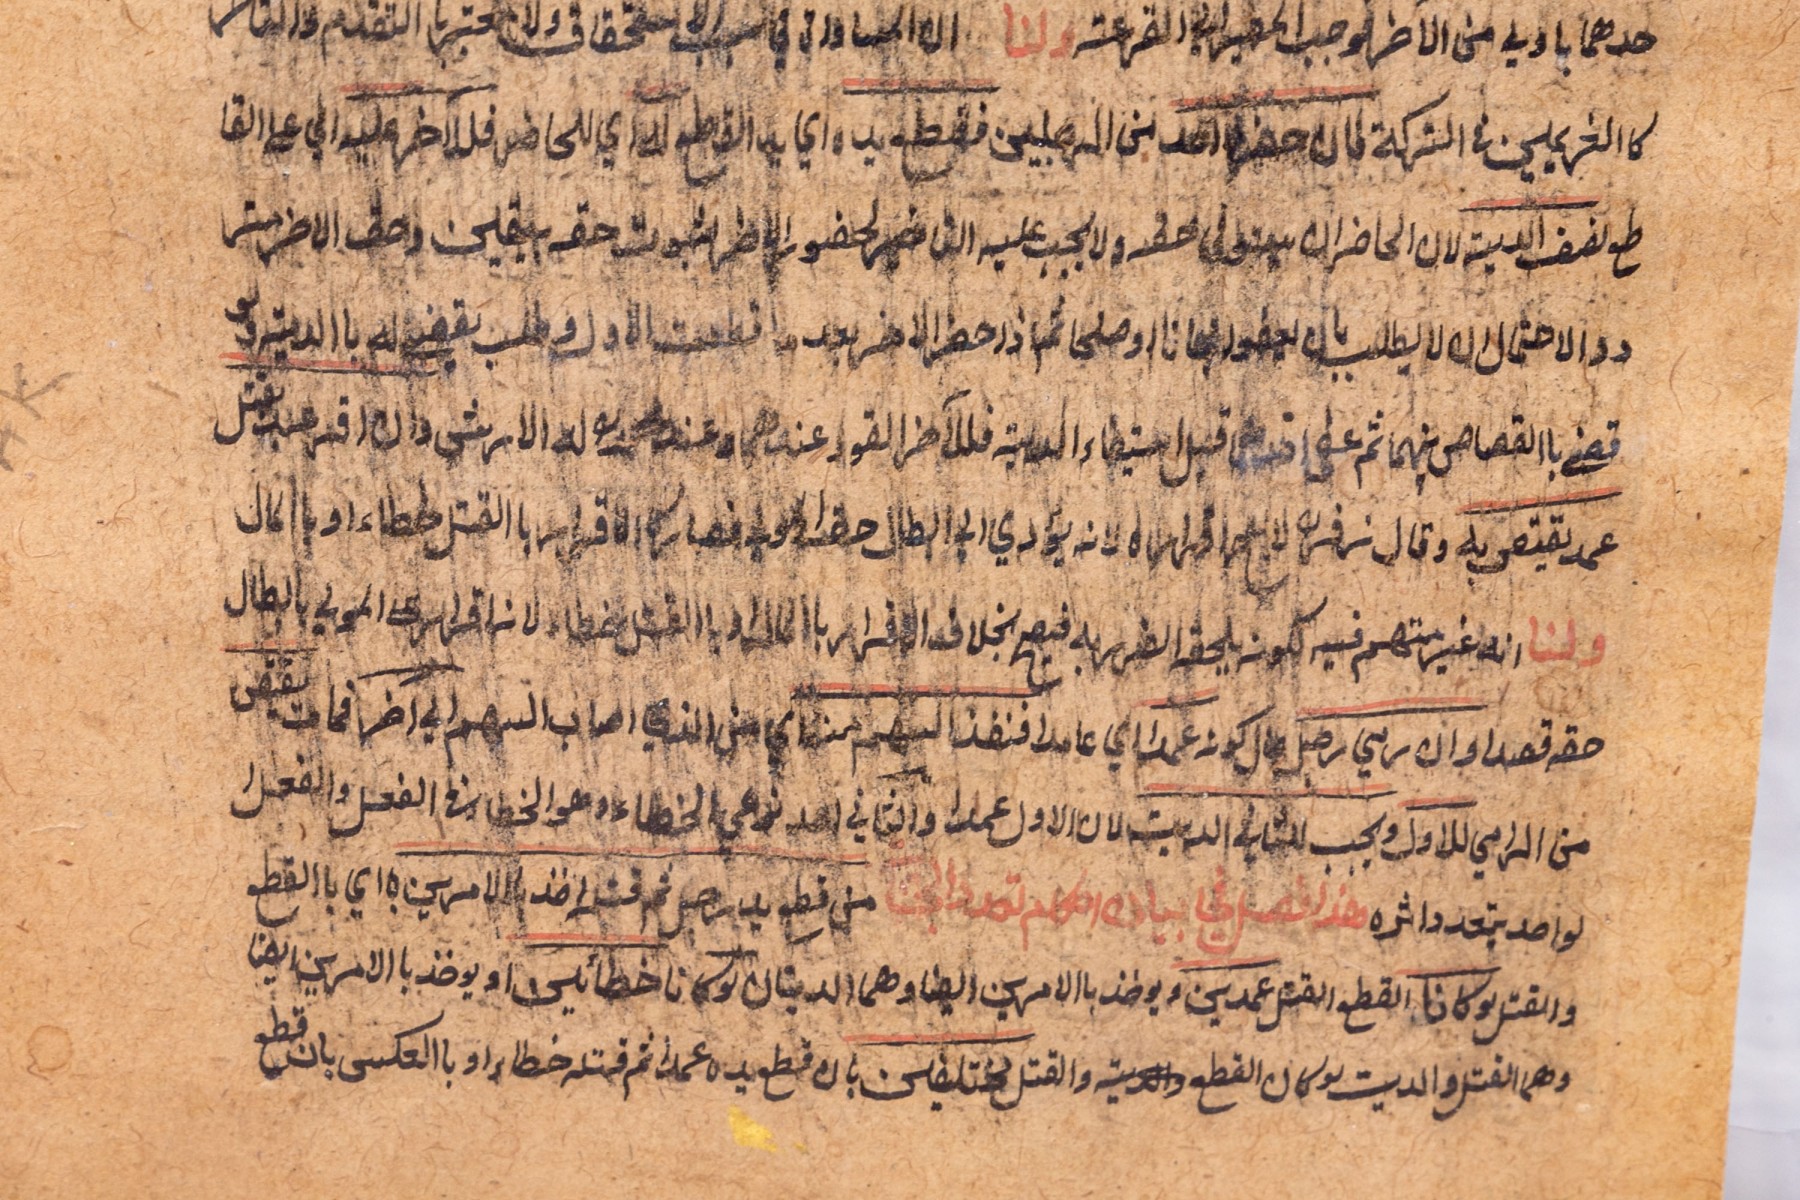 حدهما باولي من الآخر فوجب المصير الي القرعة ولنا انهما استويا في سبب الاستحقاق ولا معتبر با التقدم والتأخر
كا الغريمين في التركة فان حضر احد من المقطوعين فقطع يده اي يد القاطع له اي للحاضر فللآخر عليه اي علي القا
طع نصف الدية لان الحاضر ان يستوفي حقه ولا يجب عليه التاخير لحضور الاخر لثبوت حقه بيقين وحق الاخر متر
دد الاحتمال ان لا يطلب بان يعفو مجانا او صلحا ثم اذا حضر الاخر بعد ما قطعت الاول وطلب يقضي له با الدية ولو
قضي با القصاص بينهما ثم عفي احدهما قبل استيفاء الدية فللآخر القود عندهما وعند محمد له الارش وان اقر عبد بقتل
عمد يقتص به وقال زفر لا يصح اقراره لانه يؤدي الي ابطال حق المولي فصار كا الاقرار با القتل خطاء او با المال
ولنا انه غير متهم فيه لكونه يلحقه الضرر به فيصح بخلاف الاقرار با المال او با القتل خطاء لانه اقرار علي المولي بابطال
حقه قصدا وان رمي رجل حال كونه عمدا اي عامدا فنفذ السهم منه اي من الذي اصاب السهم الي آخر فماتا يقتص
من الرامي للاول ويجب للثاني الدية لان الاول عمدا والثاني احد نوعي الخطاء وهو الخطا في الفعل والفعل ا
لواحد يتعدد اثره هذا فصل في بيان احكام تعدد الجنا من قطع يد رجل ثم قتله اخذ با الامرين اي با القطع
والقتل لو كانا القطع القتل عمدين ويوخذ با الامرين ايضا وهما الديتان لو كانا خطائين او يوخذ با الامرين ايضا
وهما القتل والدية لو كان القطع والقتل مختلفين بان قطع يده عمدا ثم قتله خطاء او با العكس بان قطع